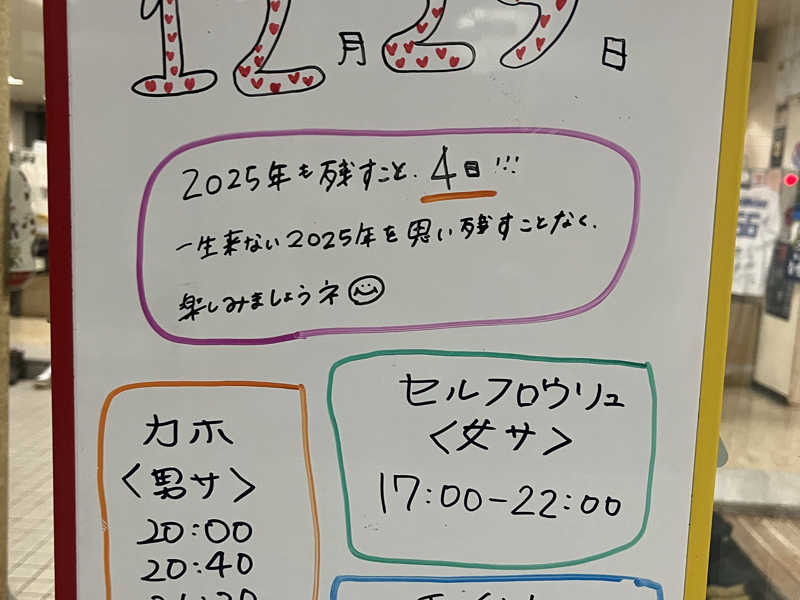 12月29日
2025年も残すこと、4日!!!
一生来ない2025年を思い残すことなく、
楽しみましょうネ
カホ
<男サ>
20:00
20:40
セルフロウリュ
<女サ>
17:00-22:00